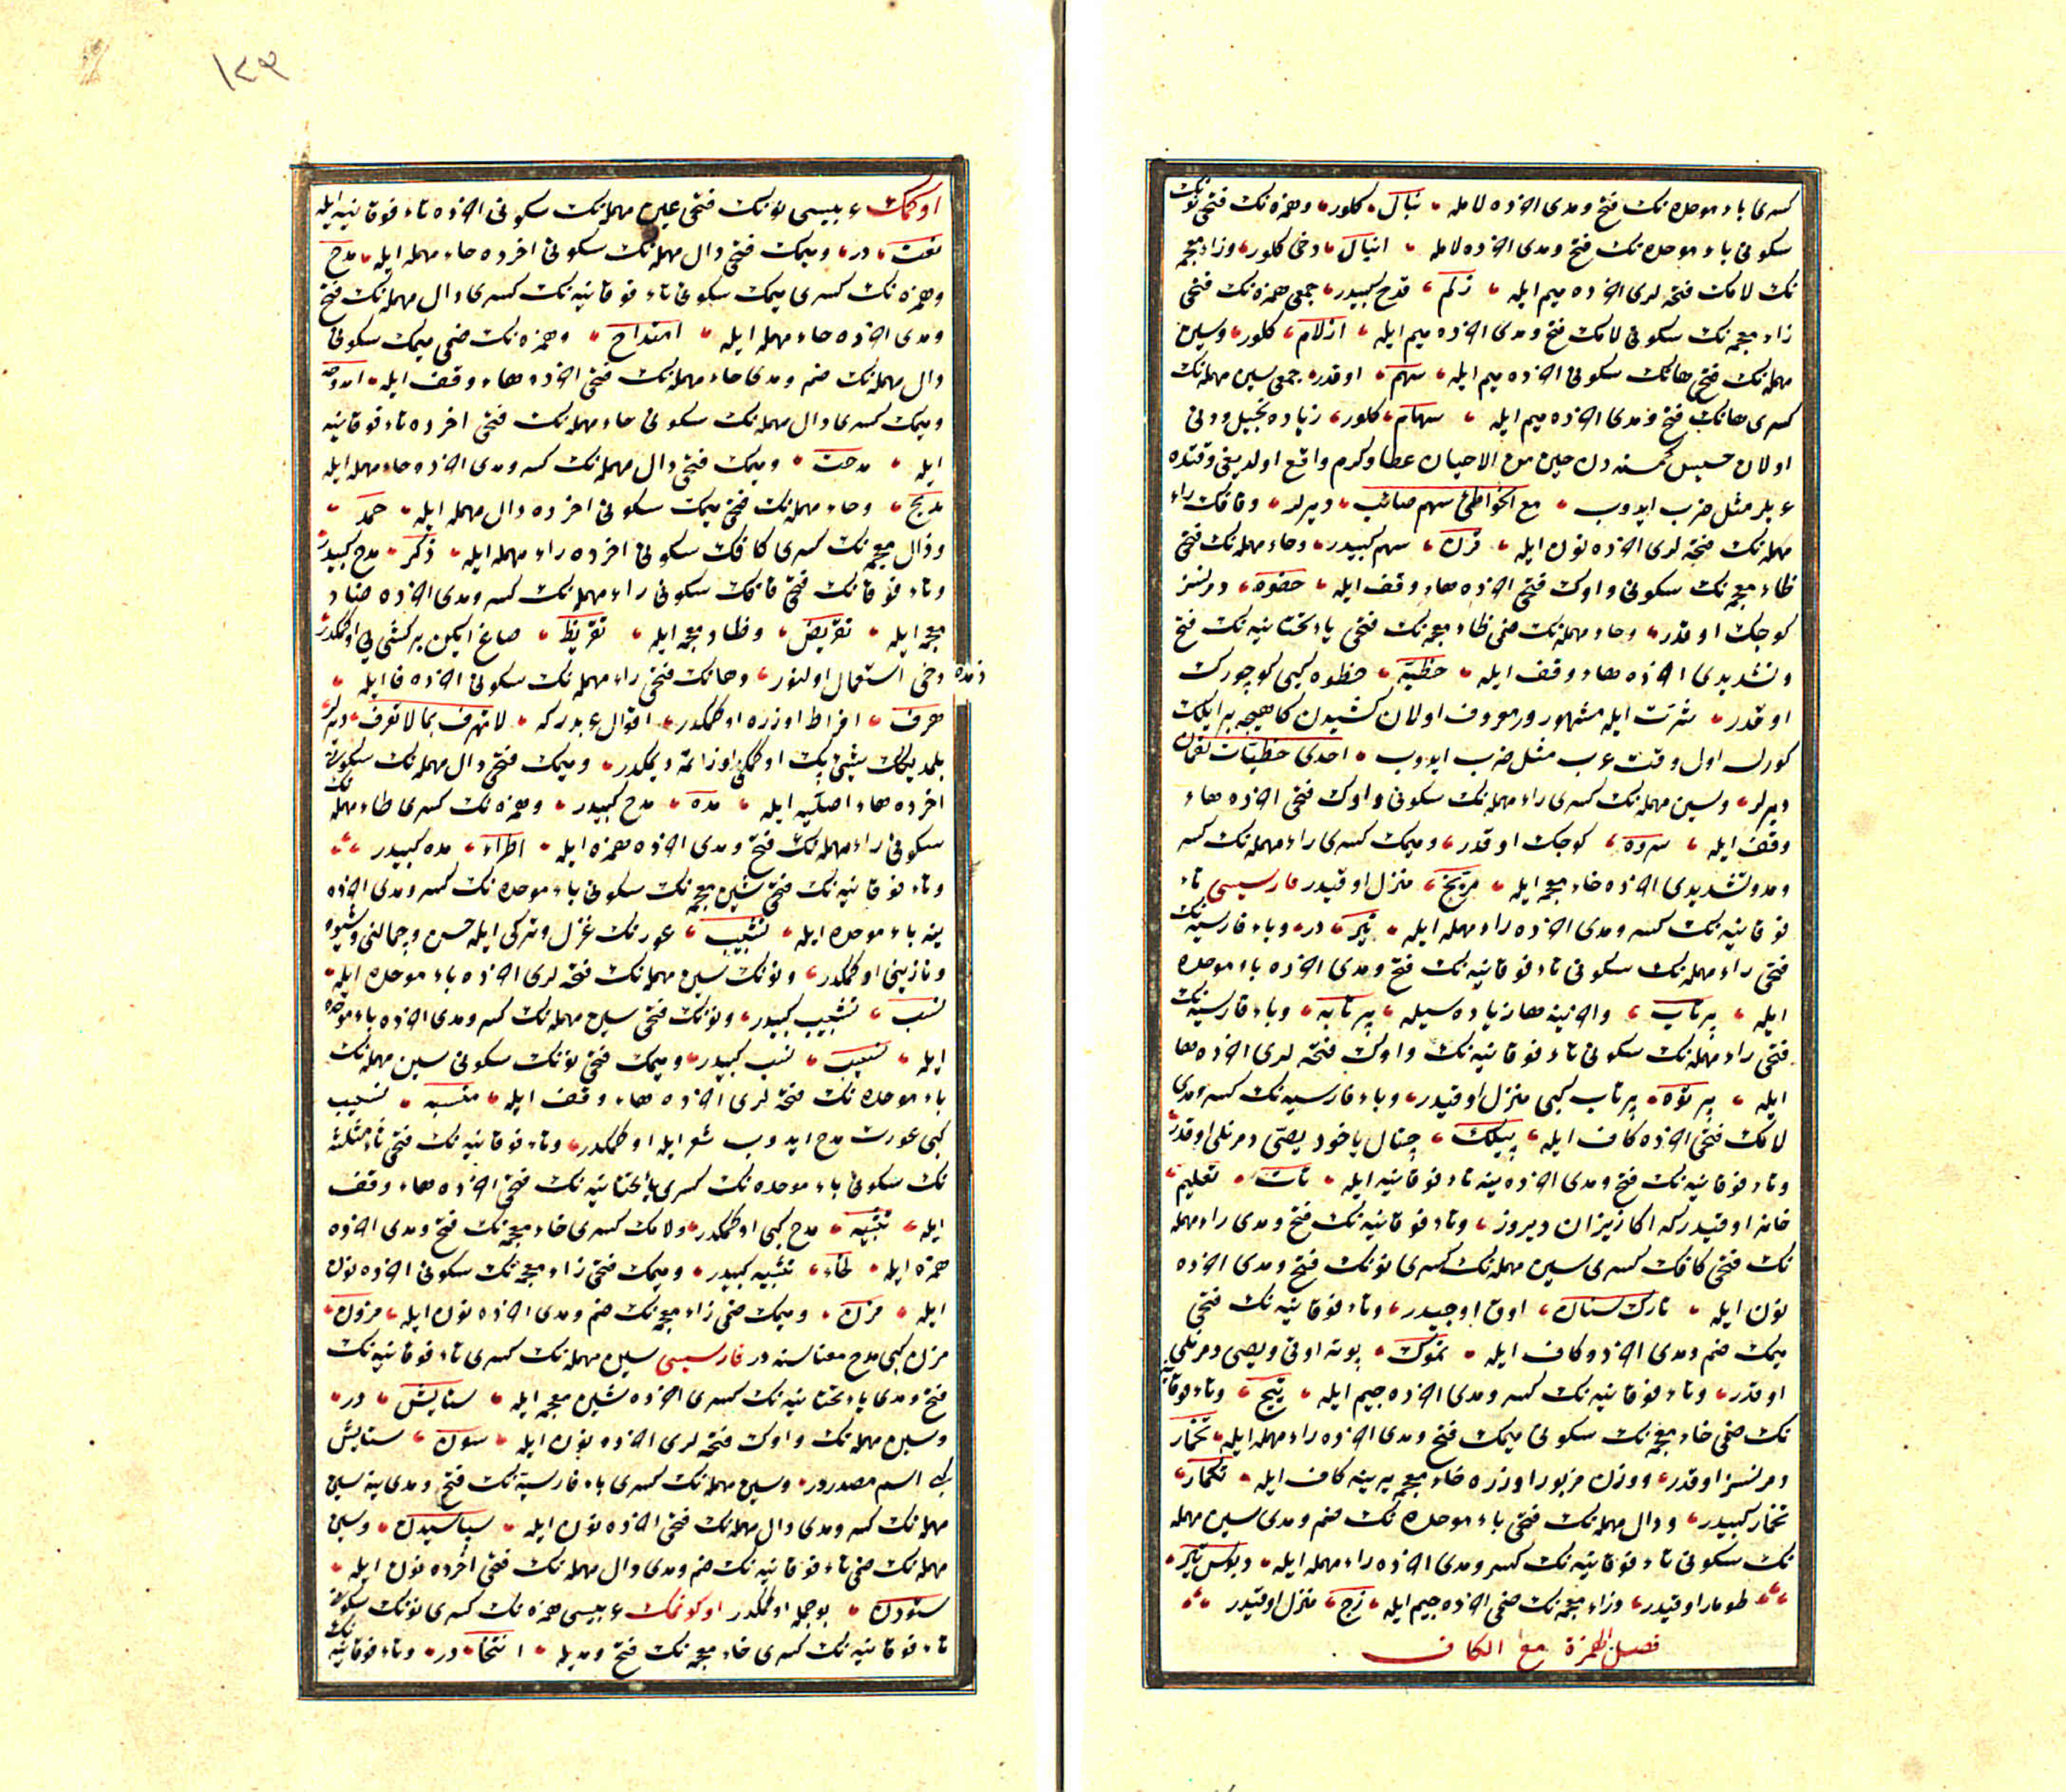 كسرى باء موحده نك فتح و مدى اخرده لامله نبال كلور و همزه نك فتحى نونك
سكونى باء موحده نك فتح و مدى اخرده لامله انبال دخى كلور و زاء معجمه
نك لامك فتحه لرى اخرده ميم ايله زلم قدح كبيدر جمعى همزه نك فتحى
زاء معجمه نك سكونى لامك فتح و مدى اخرده ميم ايله ازلام كلور و سين
مهمله نك فتحى هانك سكونى اخرده ميم ايله سهم اوقدر جمعى سين مهمله نك
كسرى هانك فتح و مدى اخرده ميم ايله سهام كلور زياده بخيل و دنى
اولان خسيس كمسنه دن حين من الاحيان عطا و كرم واقع اولديغى وقتده
عربلر مثل ضرب ايدوب مع الخواطئ سهم صائب ديرلر و قافك راء
مهمله نك فتحه لرى اخرده نون ايله قرن سهم كبيدر و حاء مهمله نك فتحى
ظاء معجمه نك سكونى و اوك فتحى اخرده هاء وقف ايله حظوه دمرنسز
كوجك اوقدر و حاء مهمله نك ضمى ظاء معجمه نك فتحى ياء تحتانيه نك فتح
و تشديدى اخرده هاء وقف ايله حظيّه حظوه كبى كوچورك
اوقدر شرّت ايله مشهور و معروف اولان كشيدن كاهيجه بر ايلك
كورلسه اول وقت عرب مثل ضرب ايدوب احدى حظيّات لقمان
ديرلر و سين مهمله نك كسرى راء مهمله نك سكونى و اوك فتحى اخرده هاء
وقف ايله سروه كوجك اوقدر و ميمك كسرى راء مهمله نك كسر
و مد و تشديدى اخرده خاء معجمه ايله مرّيخ منزل اوقيدر فارسيسى تاء
فوقانيه نك كسر و مدى اخرده راء مهمله ايله تير در و باء فارسيه نك
فتحى راء مهمله نك سكونى تاء فوقانيه نك فتح و مدى اخرده باء موحده
ايله پرتاب و اخرينه ها زياده سيله پرتابه و باء فارسيه نك
فتحى راء مهمله نك سكونى تاء فوقانيه نك و اوك فتحه لرى اخرده ها
ايله پرتوه پرتاب كبى منزل اوقيدر و باء فارسيه نك كسر و مدى
لامك فتحى اخرده كاف ايله پيلك چتال ياخود يصّى دمرنلى اوقدر
و تاء فوقانيه نك فتح و مدى اخرده ينه تاء فوقانيه ايله تات تعليم
خانه اوقيدر كه اكا زيزان ديروز و تاء فوقانيه نك فتح و مدى راء مهمله
نك فتحى كافك كسرى سين مهمله نك كسرى نونك فتح و مدى اخرده
نون ايله تارك سنان اوق اوجيدر و تاء فوقانيه نك فتحى
ميمك ضم و مدى اخرده كاف ايله تموك بوته اوقى و يصى دمرنلى
اوقدر و تاء فوقانيه نك كسر و مدى اخرده جيم ايله تيج و تاء فوقانيه
نك ضمى خاء معجمه نك سكونى ميمك فتح و مدى اخرده راء مهمله ايله تخمار
دمرنسز اوقدر و وزن مزبور اوزره خاء معجمه يرينه كاف ايله تكمار
تخمار كبيدر و دال مهمله نك فتحى باء موحده نك ضم و مدى سين مهمله
نك سكونى تاء فوقانيه نك كسر و مدى اخرده راء مهمله ايله دبوس تير
طومار اوقيدر و زاء معجمه نك ضمى اخرده جيم ايله زج منزل اوقيدر
فصل الهمزة مع الكاف
١٢٩
اوكمك عربيسى نونك فتحى عين مهمله نك سكونى اخرده تاء فوقانيه ايله
نعت در و ميمك فتحى دال مهمله نك سكونى اخرده حاء مهمله ايله مدح
و همزه نك كسرى ميمك سكونى تاء فوقانيه نك كسرى دال مهمله نك فتح
و مدى اخرده حاء مهمله ايله امتداح و همزه نك ضمى ميمك سكونى
دال مهمله نك ضم و مدى حاء مهمله نك فتحى اخرده هاء وقف ايله امدوحه
و ميمك كسرى دال مهمله نك سكونى حاء مهمله نك فتحى اخرده تاء فوقانيه
ايله مدحت و ميمك فتحى دال مهمله نك كسر و مدى اخرده حاء مهمله ايله
مديح و حاء مهمله نك فتحى ميمك سكونى اخرده دال مهمله ايله حمد
و ذال معجمه نك كسرى كافك سكونى اخرده راء مهمله ايله ذكر مدح كبيدر
و تاء فوقانك فتحى قافك سكونى راء مهمله نك كسر و مدى اخرده ضاد
معجمه ايله تقريض و ظاء معجمه ايله تقريظ صاغ ايكن بر كشى يى اوكمكدر
ذمده دخى استعمال اولنور و هانك فتحى راء مهمله نك سكونى اخرده فا ايله
هرف افراط اوزره اوكمكدر اقوال عربدر كه لا تهرف بما لا تعرف ديرلر
بلمديكك شيئى پك اوكمكى اوزاتمه ديمكدر و ميمك فتحى دال مهمله نك سكونى
اخرده هاء اصليه ايله مده مدح كبيدر و همزه نك كسرى طاء مهمله نك
سكونى راء مهمله نك فتح و مدى اخرده همزه ايله اطراء مده كبيدر
و تاء فوقانيه نك فتحى شين معجمه نك سكونى باء موحده نك كسر و مدى اخرده
ينه باء موحده ايله تشبيب عورتك غزل و تركى ايله حسن و جمالنى و شيوه
و نازينى اوكمكدر و نونك سين مهمله نك فتحه لرى اخرده باء موحده ايله
نسب تشبيب كبيدر و نونك فتحى سين مهمله نك كسر و مدى اخرده باء موحده
ايله نسيب نسب كبيدر و ميمك فتحى نونك سكونى سين مهمله نك
باء موحده نك فتحه لرى اخرده هاء وقف ايله منسبه نسيب
كبى عورت مدح ايدوب شعر ايله اوكمكدر و تاء فوقانيه نك فتحى ثاء مثلثه
نك سكونى باء موحده نك كسرى ياء تحتانيه نك فتحى اخرده هاء وقف
ايله تثبيه مدح كبى اوكمكدر و لامك كسرى خاء معجمه نك فتح و مدى اخرده
همزه ايله لخاء تثبيه كبيدر و ميمك فتحى زاء معجمه نك سكونى اخرده نون
ايله مزن و ميمك ضمى زاء معجمه نك ضم و مدى اخرده نون ايله مزون
مزن كبى مدح معناسنه در فارسيسى سين مهمله نك كسرى تاء فوقانيه نك
فتح و مدى ياء تحتانيه نك كسرى اخرده شين معجمه ايله ستايش در
و سين مهمله نك و اوك فتحه لرى اخرده نون ايله سون ستايش
كبى اسم مصدردر و سين مهمله نك كسرى باء فارسيه نك فتح و مدى ينه سين
مهمله نك كسر و مدى دال مهمله نك فتحى اخرده نون ايله سپاسيدن و سين
مهمله نك ضمى تاء فوقانيه نك ضم و مدى دال مهمله نك فتحى اخرده نون ايله
ستودن بو جمله اوكمكدر اوكونمك عربيسى همزه نك كسرى نونك سكونى
تاء فوقانيه نك كسرى خاء معجمه نك فتح و مديله انتخا در و تاء فوقانيه نك